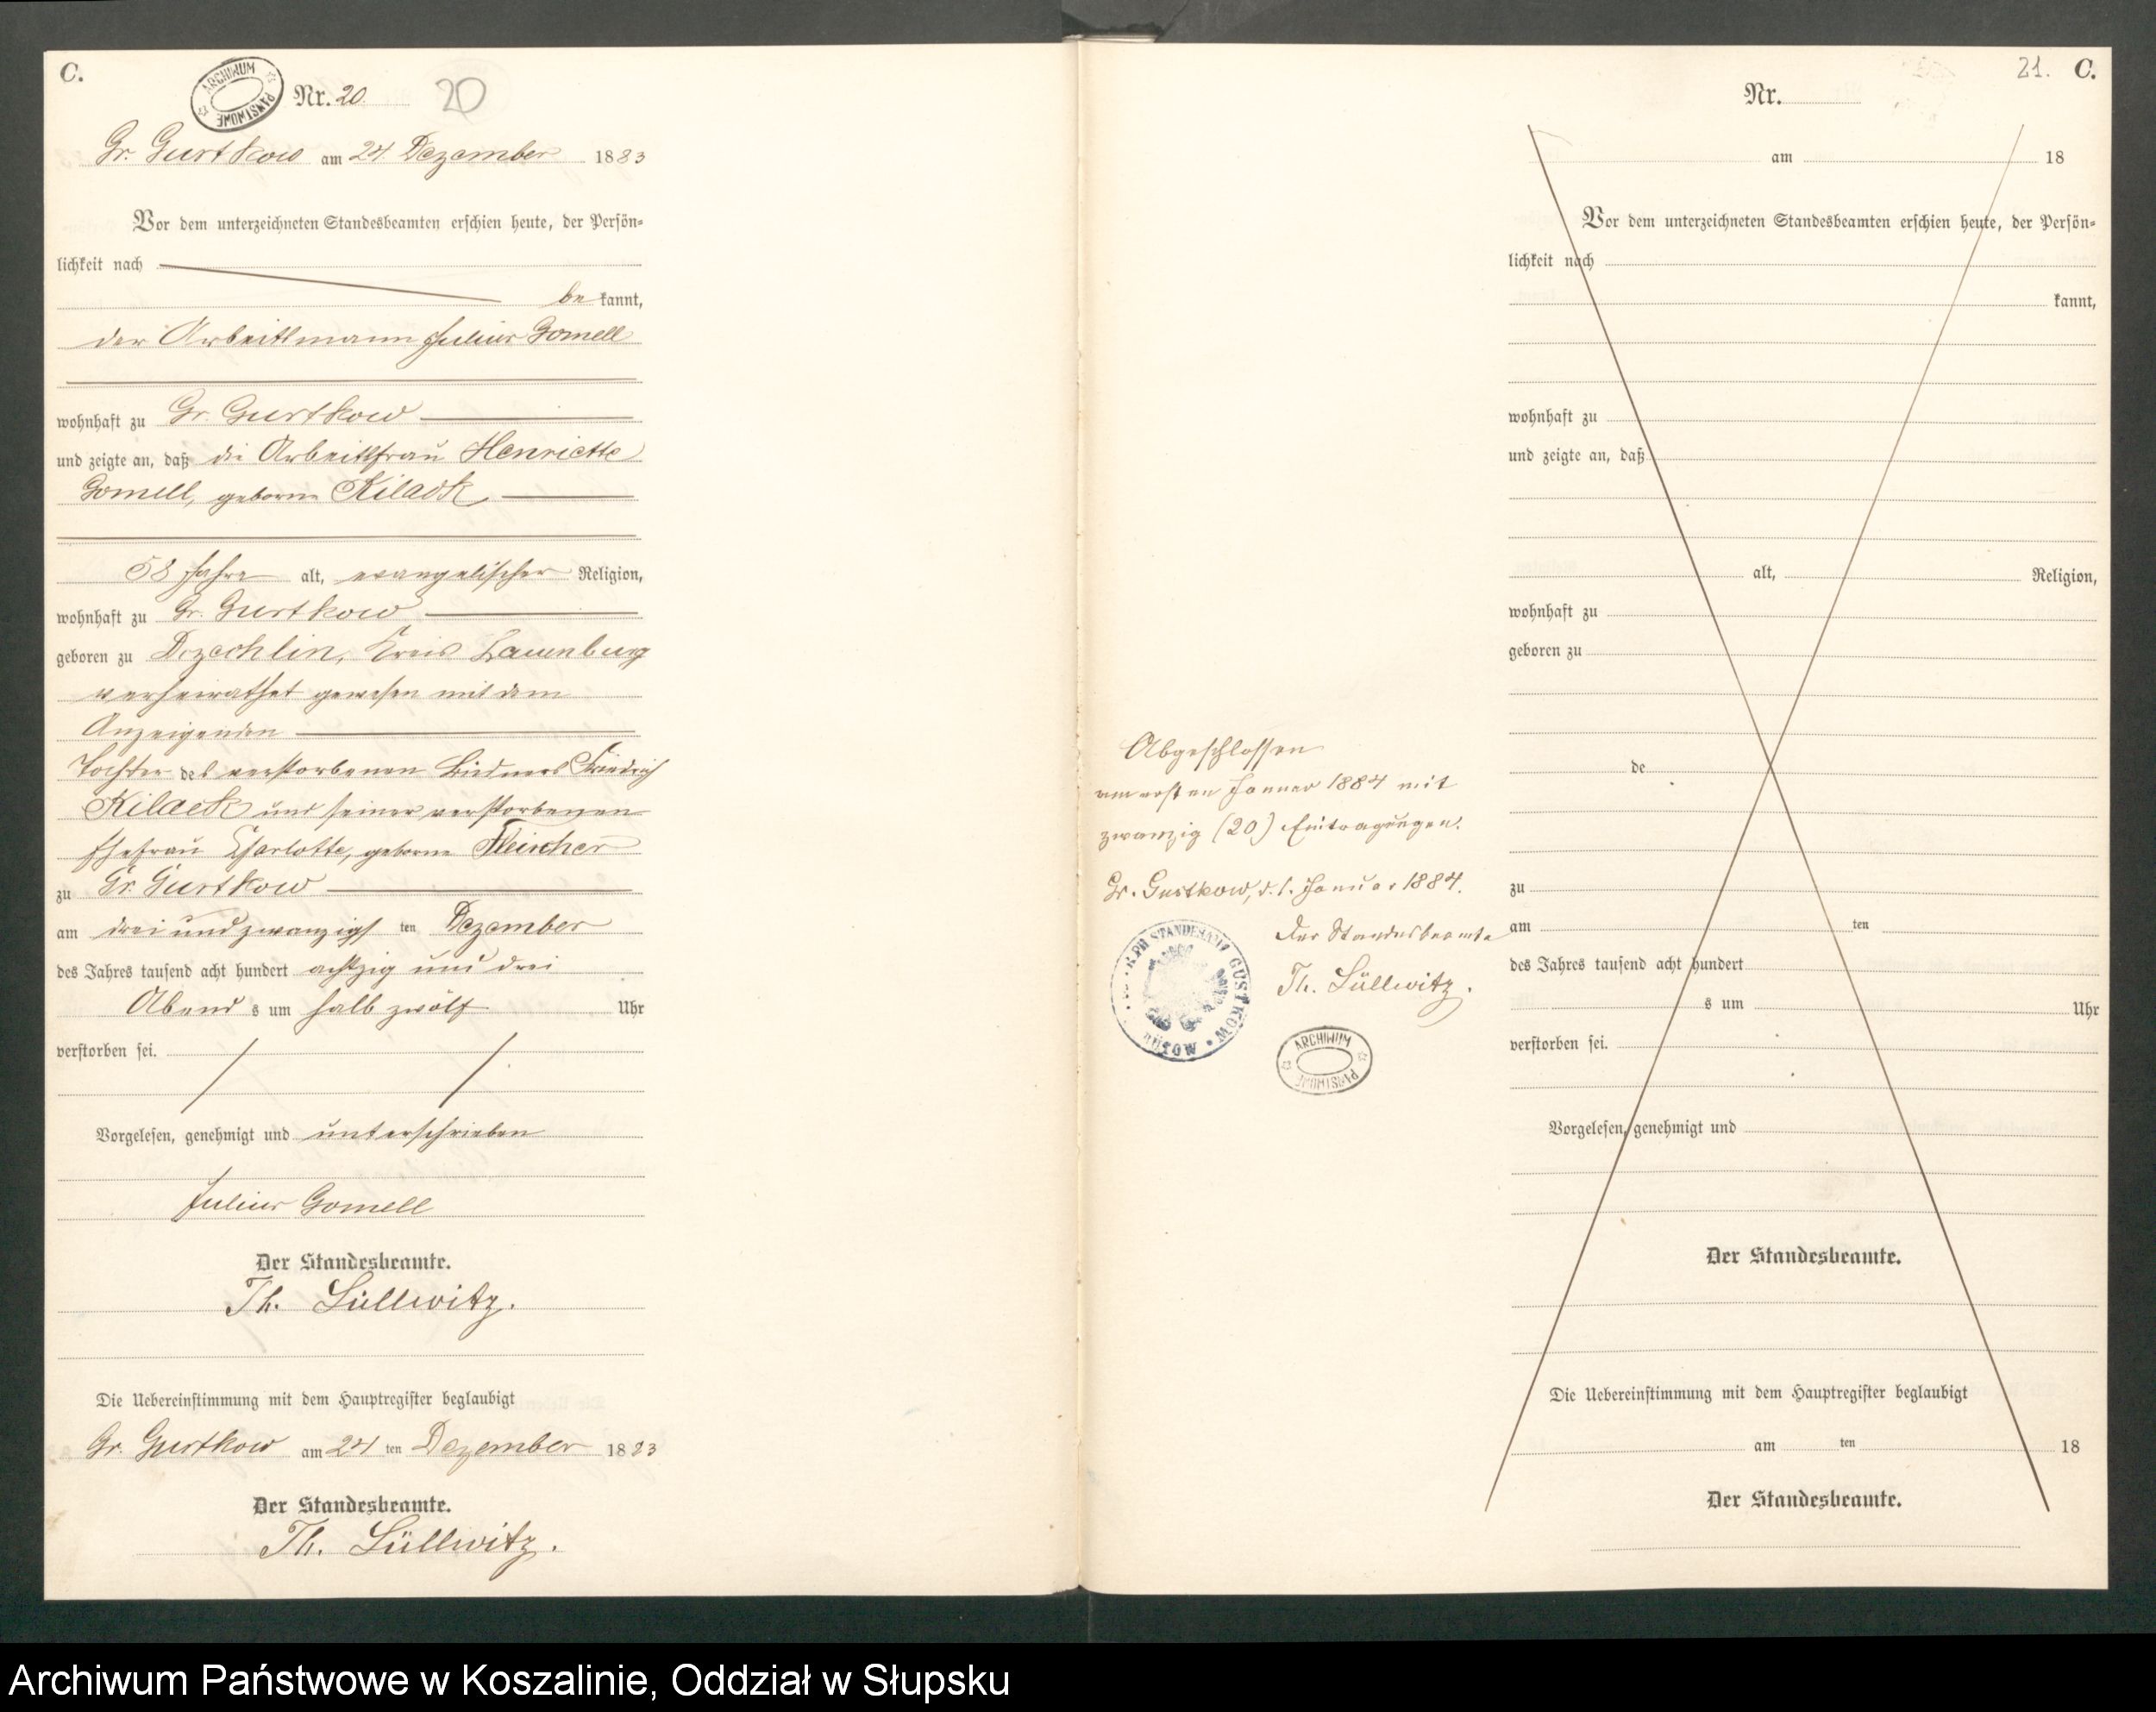 C.
ARCHIWUM PAŃSTWOWE
Nr. 20.
20
Gr. Gustkow am 24. Dezember 1883
Vor dem unterzeichneten Standesbeamten erschien heute, der Persön-
lichkeit nach
be kannt,
der Arbeitsmann Julius Gomell
wohnhaft zu Gr. Gustkow
und zeigte an, daß die Arbeitsfrau Henriette
Gomell, geborne Kilack
58 Jahre alt, evangelischer Religion,
wohnhaft zu Gr. Gustkow
geboren zu Dzechlin, Kreis Lauenburg
verheirathet gewesen mit dem
Anzeigenden
Tochter des verstorbenen Büdners Friedrich
Kilack und seiner verstorbenen
Ehefrau Charlotte, geborne Fleischer
zu Gr. Gustkow
am drei und zwanzigsten Dezember
des Jahres tausend acht hundert achtzig und drei
Abend s um halb zwölf Uhr
verstorben sei.
Vorgelesen, genehmigt und unterschrieben
Julius Gomell
Der Standesbeamte.
Th. Süllwitz.
Die Uebereinstimmung mit dem Hauptregister beglaubigt
Gr. Gustkow am 24 ten Dezember 1883
Der Standesbeamte.
Th. Süllwitz.
Abgeschlossen
am ersten Januar 1884 mit
zwanzig (20) Eintragungen.
Gr. Gustkow, d. 1. Januar 1884.
Der Standesbeamte
Th. Süllwitz.
STANDESAMT GUSTKOW BÜTOW
ARCHIWUM PAŃSTWOWE
21. C.
Nr.
am 18
Vor dem unterzeichneten Standesbeamten erschien heute, der Persön-
lichkeit nach
kannt,
wohnhaft zu
und zeigte an, daß
alt, Religion,
wohnhaft zu
geboren zu
de
zu
am ten
des Jahres tausend acht hundert
s um Uhr
verstorben sei.
Vorgelesen, genehmigt und
Der Standesbeamte.
Die Uebereinstimmung mit dem Hauptregister beglaubigt
am ten 18
Der Standesbeamte.
Archiwum Państwowe w Koszalinie, Oddział w Słupsku